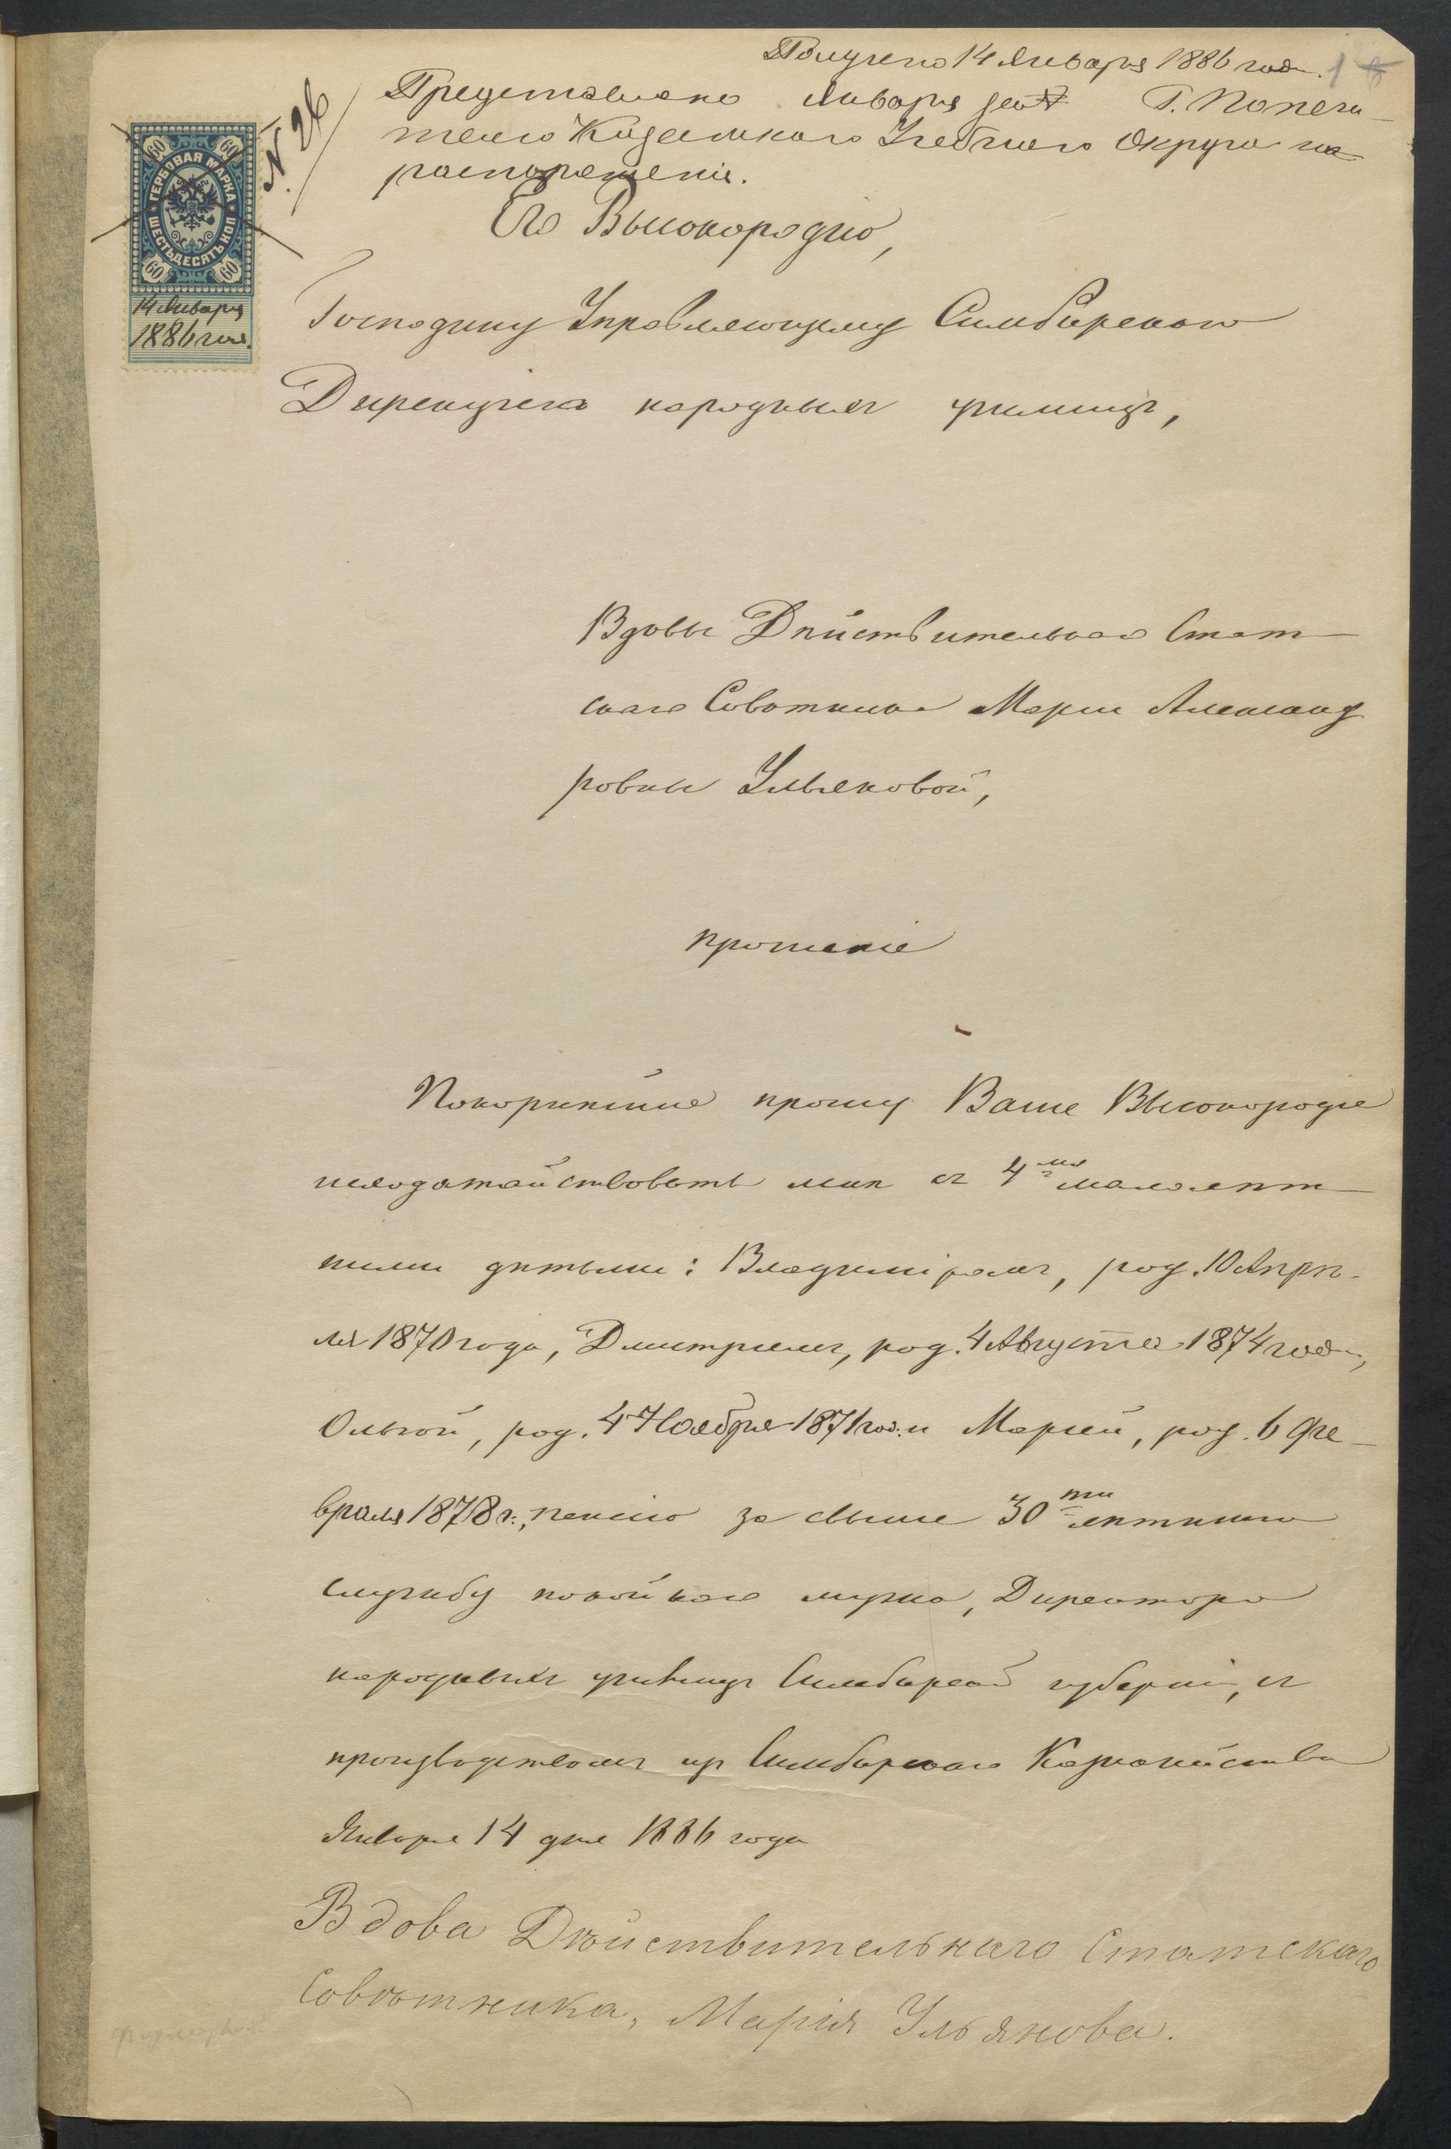 Получено 14 Января 1886 года. 1
Представлено Января дня Г. Попечи-
телю Казанскаго Учебнаго Округа на
распоряженіе.
№ 26
60 60
ГЕРБОВАЯ МАРКА
ШЕСТЬДЕСЯТЪ КОП
60 60
14 Января
1886 года.
Его Высокородію,
Господину Управляющему Симбирскою
Дирекціею народныхъ училищъ,
Вдовы Дѣйствительнаго Стат-
скаго Совѣтника Маріи Александ
ровны Ульяновой,
прошеніе
Покорнѣйше прошу Ваше Высокородіе
исходатайствовать мнѣ съ 4мя малолѣт-
ними дѣтьми: Владиміромъ, род. 10 Апрѣ-
ля 1870 года, Дмитріемъ, род. 4 Августа 1874 года,
Ольгой, род. 4 Ноября 1871 год. и Маріей, род. 6 Фе-
враля 1878 г., пенсію за свыше 30ти лѣтнюю
службу покойнаго мужа, Директора
народныхъ училищъ Симбирской губерніи, съ
производствомъ изъ Симбирскаго Казначейства
Января 14 дня 1886 года
Вдова Дѣйствительнаго Статскаго
Совѣтника, Марія Ульянова.